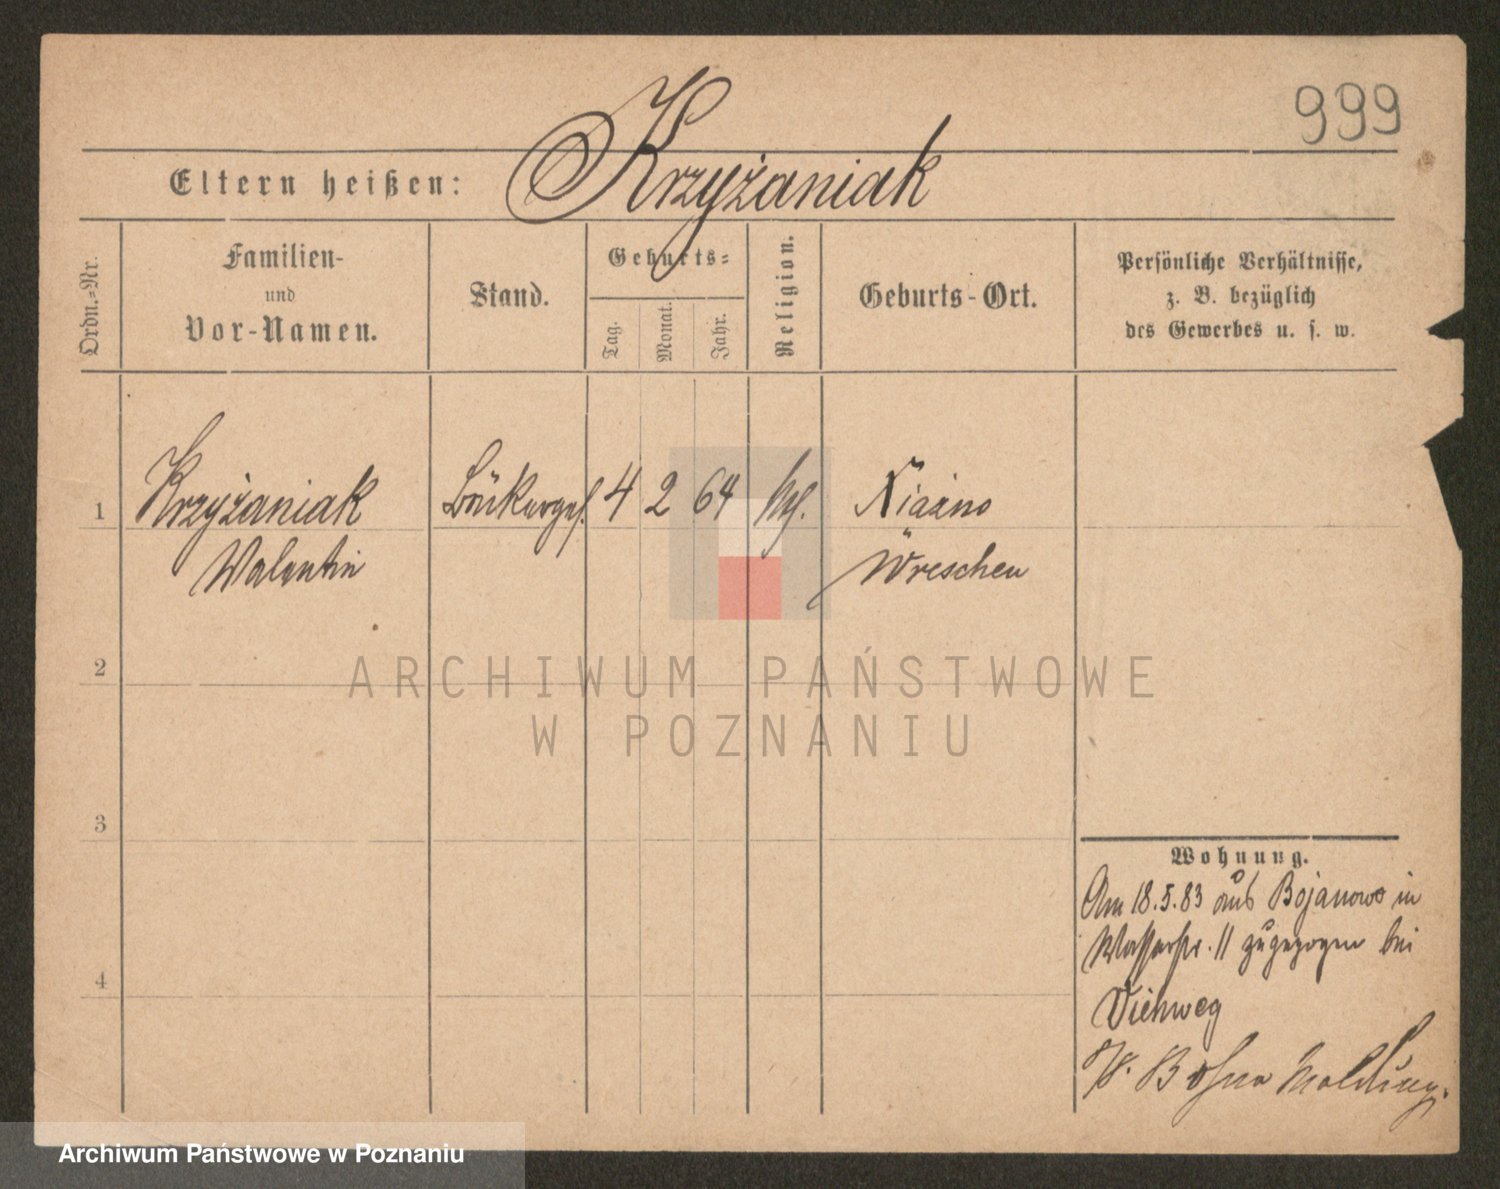 999
Eltern heißen: Krzyżaniak
Ordn.=Nr.
Familien-
und
Vor-Namen.
Stand.
Geburts=
Tag.
Monat.
Jahr.
Religion.
Geburts-Ort.
Persönliche Verhältnisse,
z. B. bezüglich
des Gewerbes u. s. w.
1 Krzyżaniak 4 2 64
Walentin Wreschen
2
3
4
Wohnung.
Am 18.5.83 aus Bojanowo in
Wasserstr. 11 zugezogen bei
Viehweg
ARCHIWUM PAŃSTWOWE
W POZNANIU
Archiwum Państwowe w Poznaniu